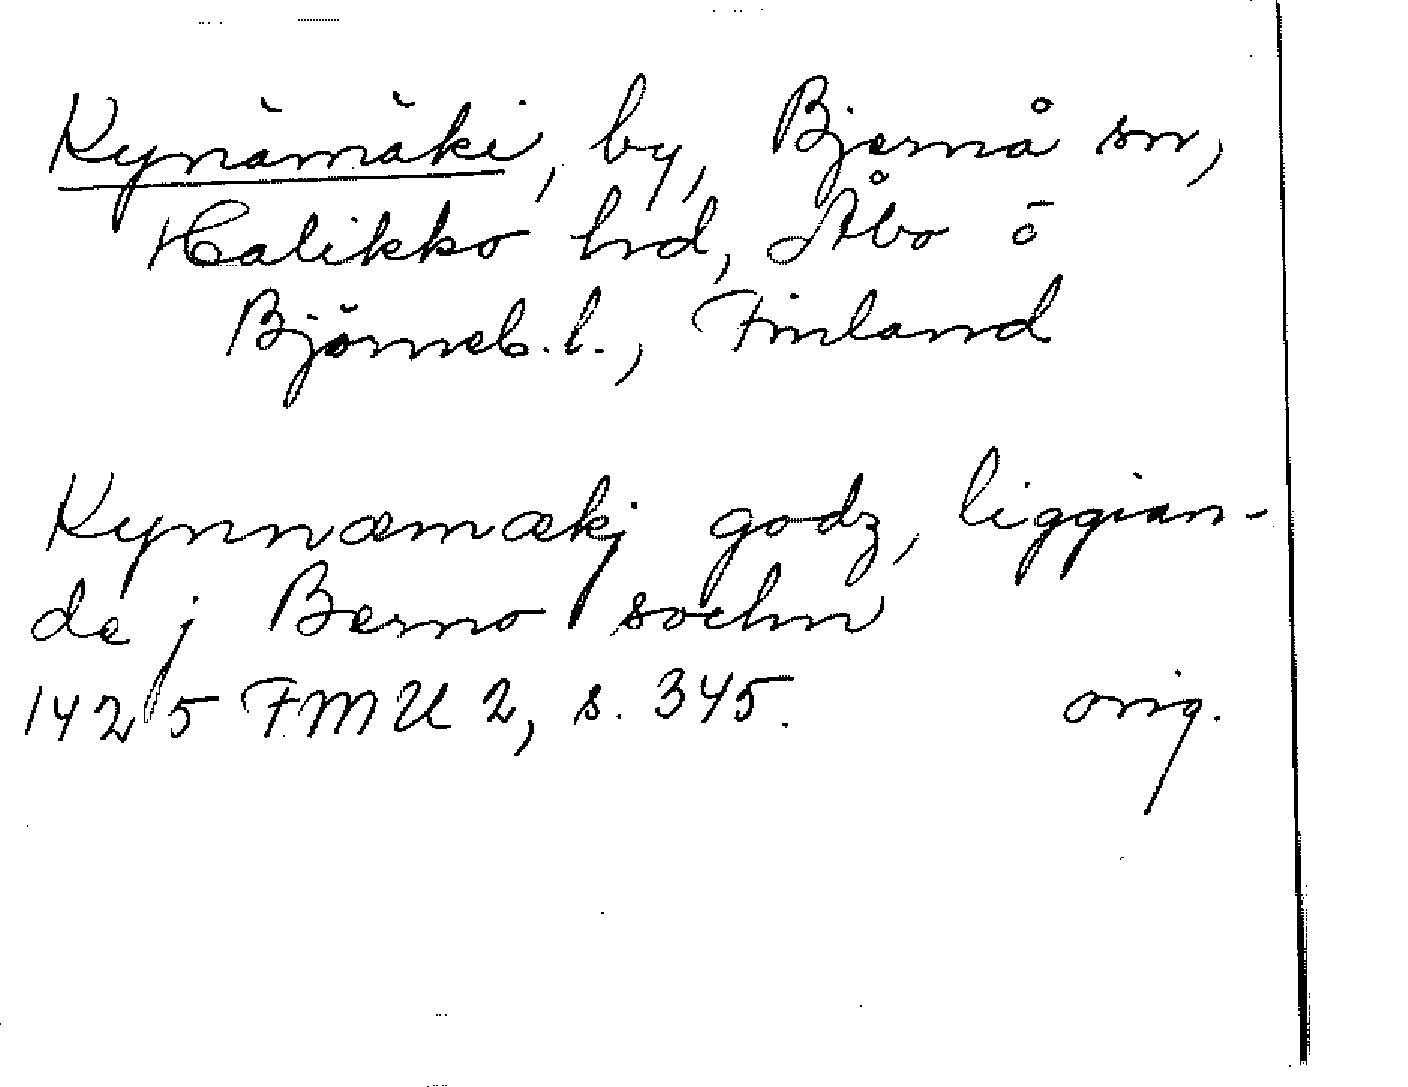 Kynämäki, by, Bjernå sn,
Halikko hd, Åbo o
Björneb. l., Finland
Kynnæmækj godz, liggian-
de j Berno sochn
1425 FMU 2, s. 345. orig.